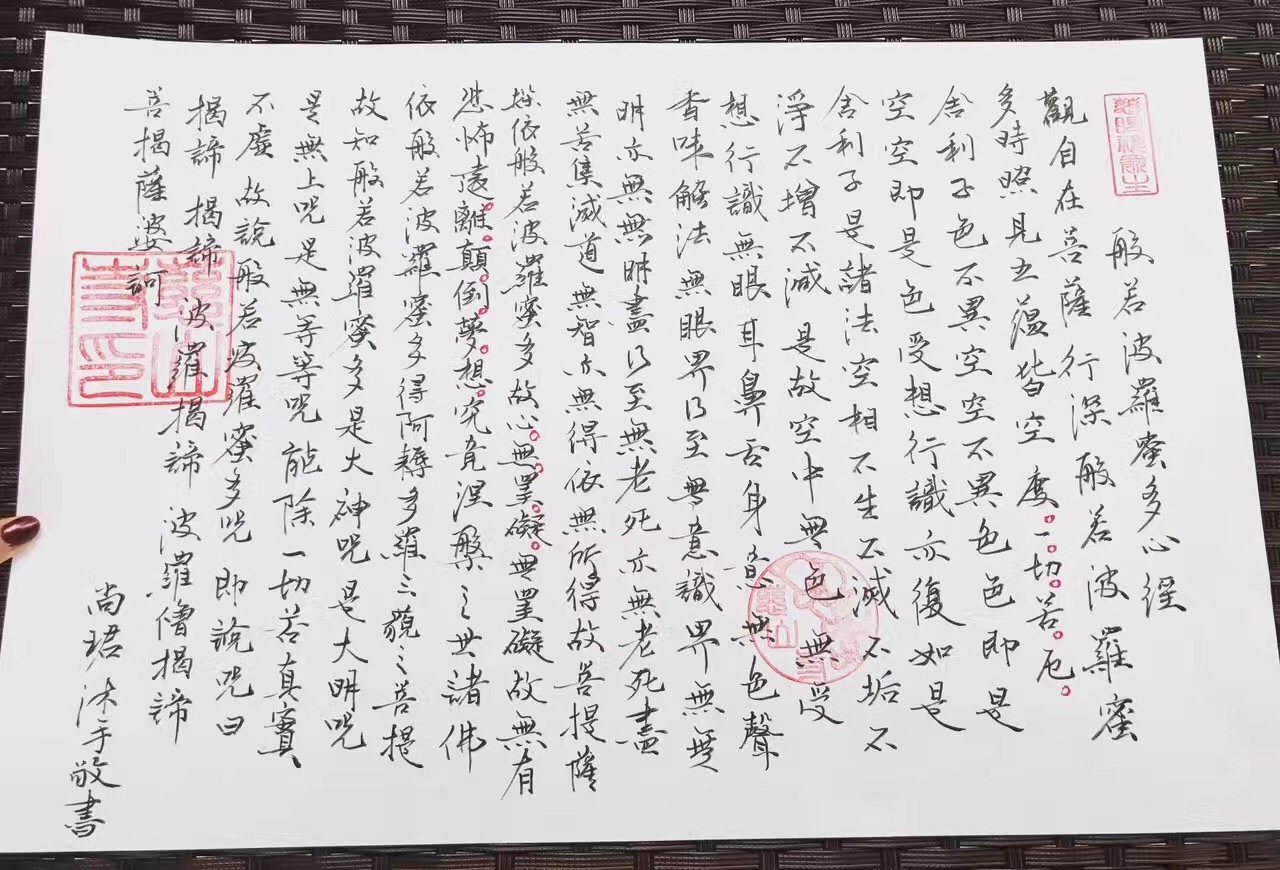 般若波羅蜜多心經
觀自在菩薩行深般若波羅蜜
多時照見五蘊皆空度。一。切。苦。厄。
舍利子色不異空空不異色色即是
空空即是色受想行識亦復如是
舍利子是諸法空相不生不滅不垢不
淨不增不減是故空中無色無受
想行識無眼耳鼻舌身意無色聲
香味解法無眼界乃至無意識界無無
明亦無無明盡乃至無老死亦無老死盡
無苦集滅道無智亦無得依無所得故菩提薩
埵依般若波羅蜜多故心。無。罣。礙。無罣礙故無有
恐怖遠離。顛。倒。夢。想。究竟涅槃三世諸佛
依般若波羅蜜多得阿耨多羅三藐三菩提
故知般若波羅蜜多是大神咒是大明咒
是無上咒是無等等咒能除一切苦真實
不虛故說般若波羅蜜多咒即說咒曰
揭諦 揭諦 波羅揭諦 波羅僧揭諦
菩揭薩婆訶
尚珺沐手敬書